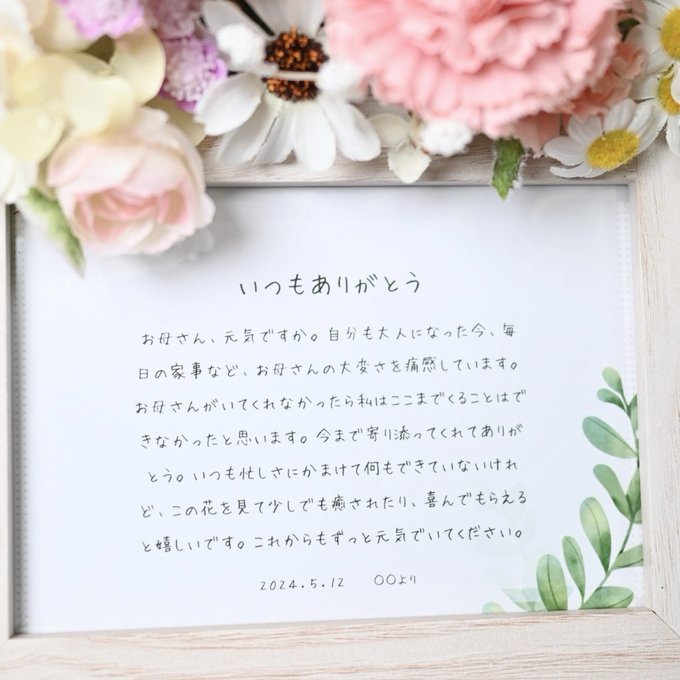 いつもありがとう
お母さん、元気ですか。自分も大人になった今、毎
日の家事など、お母さんの大変さを痛感しています。
お母さんがいてくれなかったら私はここまでくることはで
きなかったと思います。今まで寄り添ってくれてありが
とう。いつも忙しさにかまけて何もできていないけれ
ど、この花を見て少しでも癒されたり、喜んでもらえる
と嬉しいです。これからもずっと元気でいてください。
2024.5.12 〇〇より